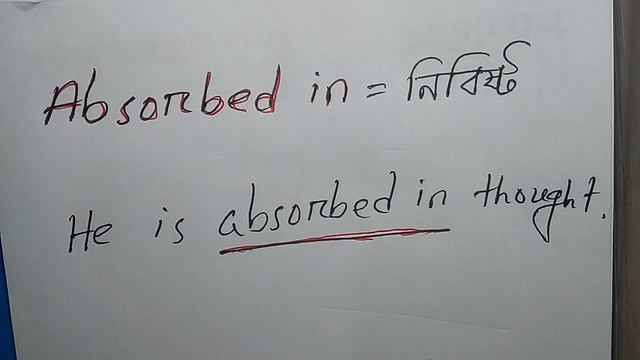 Absorbed in = নিবিষ্ট
He is absorbed in thought.